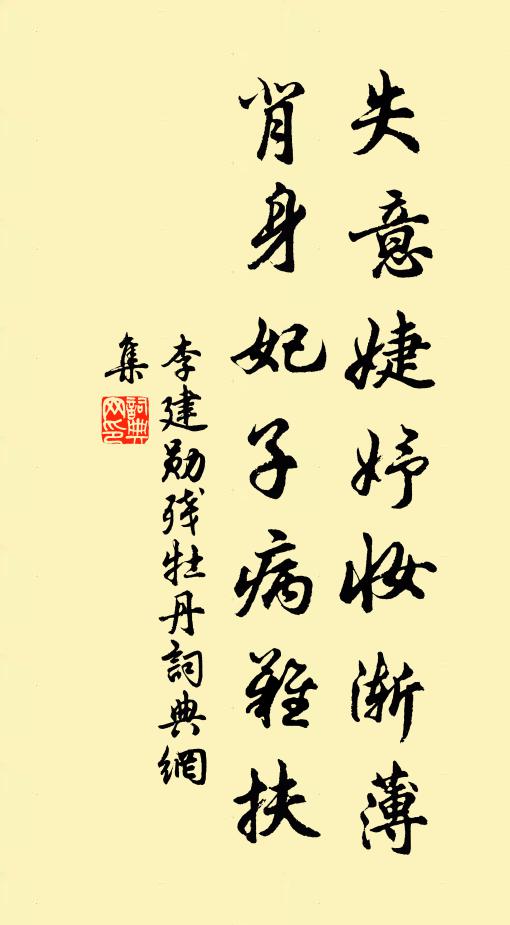 失意婕妤妆渐薄
背身妃子病难扶
李建勋残牡丹詞典網
集
詞典
网印